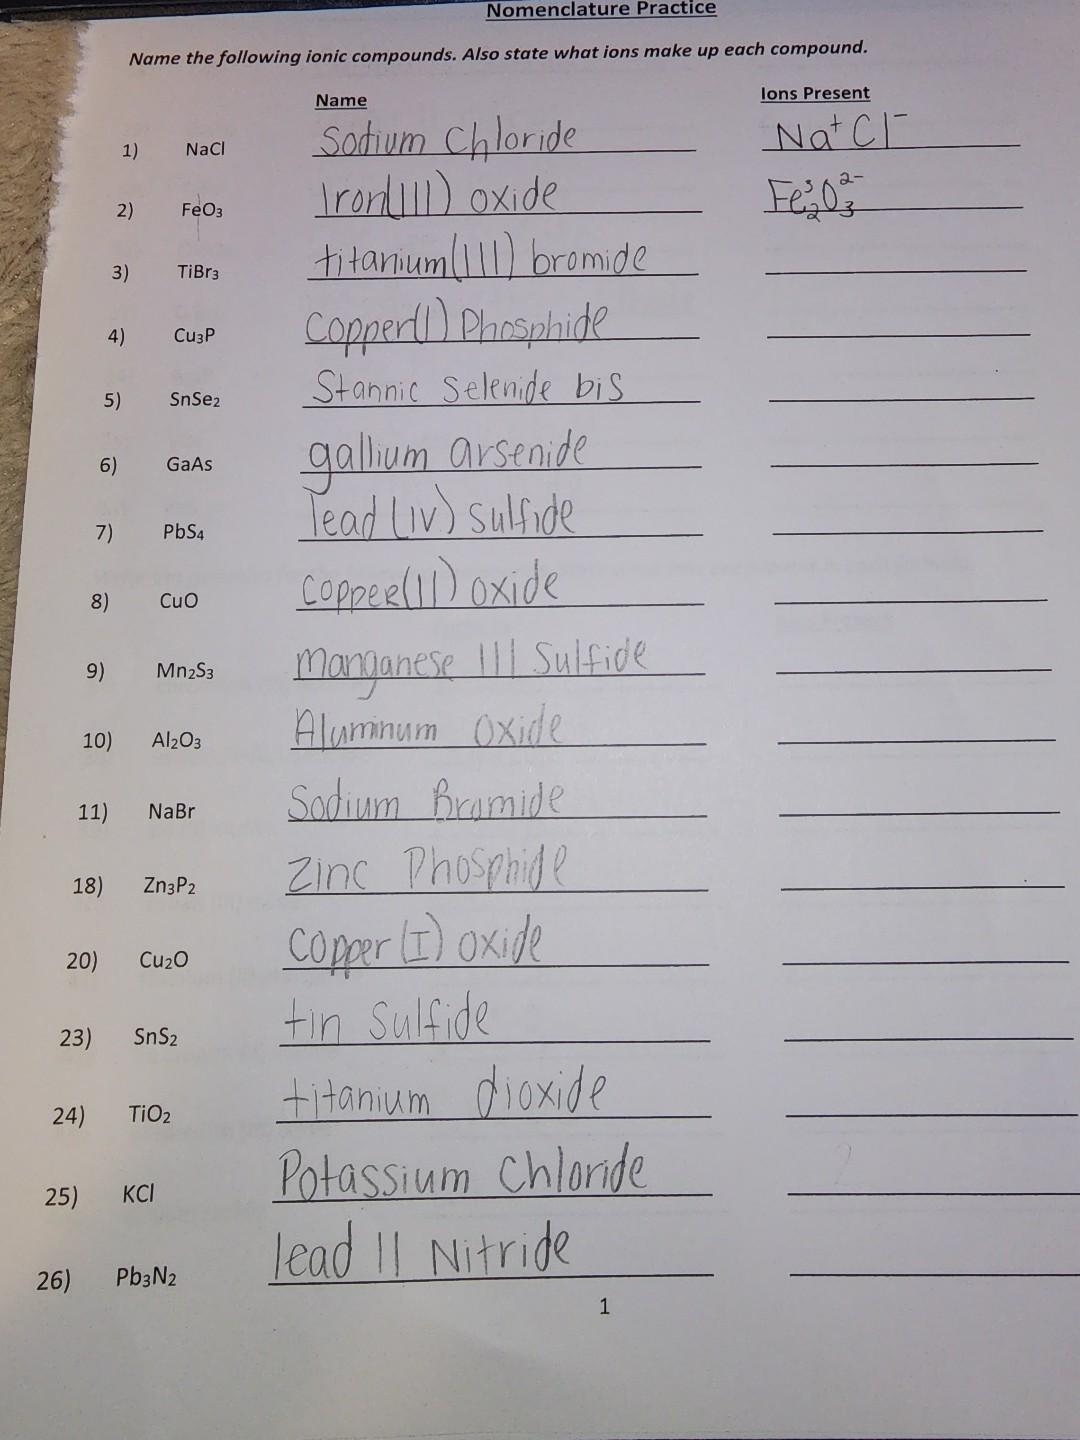 Nomenclature Practice
Name the following ionic compounds. Also state what ions make up each compound.
Name Ions Present
1) NaCl Sodium Chloride Na⁺ Cl⁻
2) FeO₃ Iron(III) oxide Fe³₂O²⁻₃
3) TiBr₃ titanium(III) bromide
4) Cu₃P Copper(I) Phosphide
5) SnSe₂ Stannic Selenide bis
6) GaAs gallium arsenide
7) PbS₄ lead (IV) sulfide
8) CuO Copper(II) oxide
9) Mn₂S₃ manganese III Sulfide
10) Al₂O₃ Aluminum Oxide
11) NaBr Sodium Bromide
18) Zn₃P₂ Zinc Phosphide
20) Cu₂O Copper (I) oxide
23) SnS₂ tin Sulfide
24) TiO₂ titanium dioxide
25) KCl Potassium Chloride
26) Pb₃N₂ lead II Nitride
1